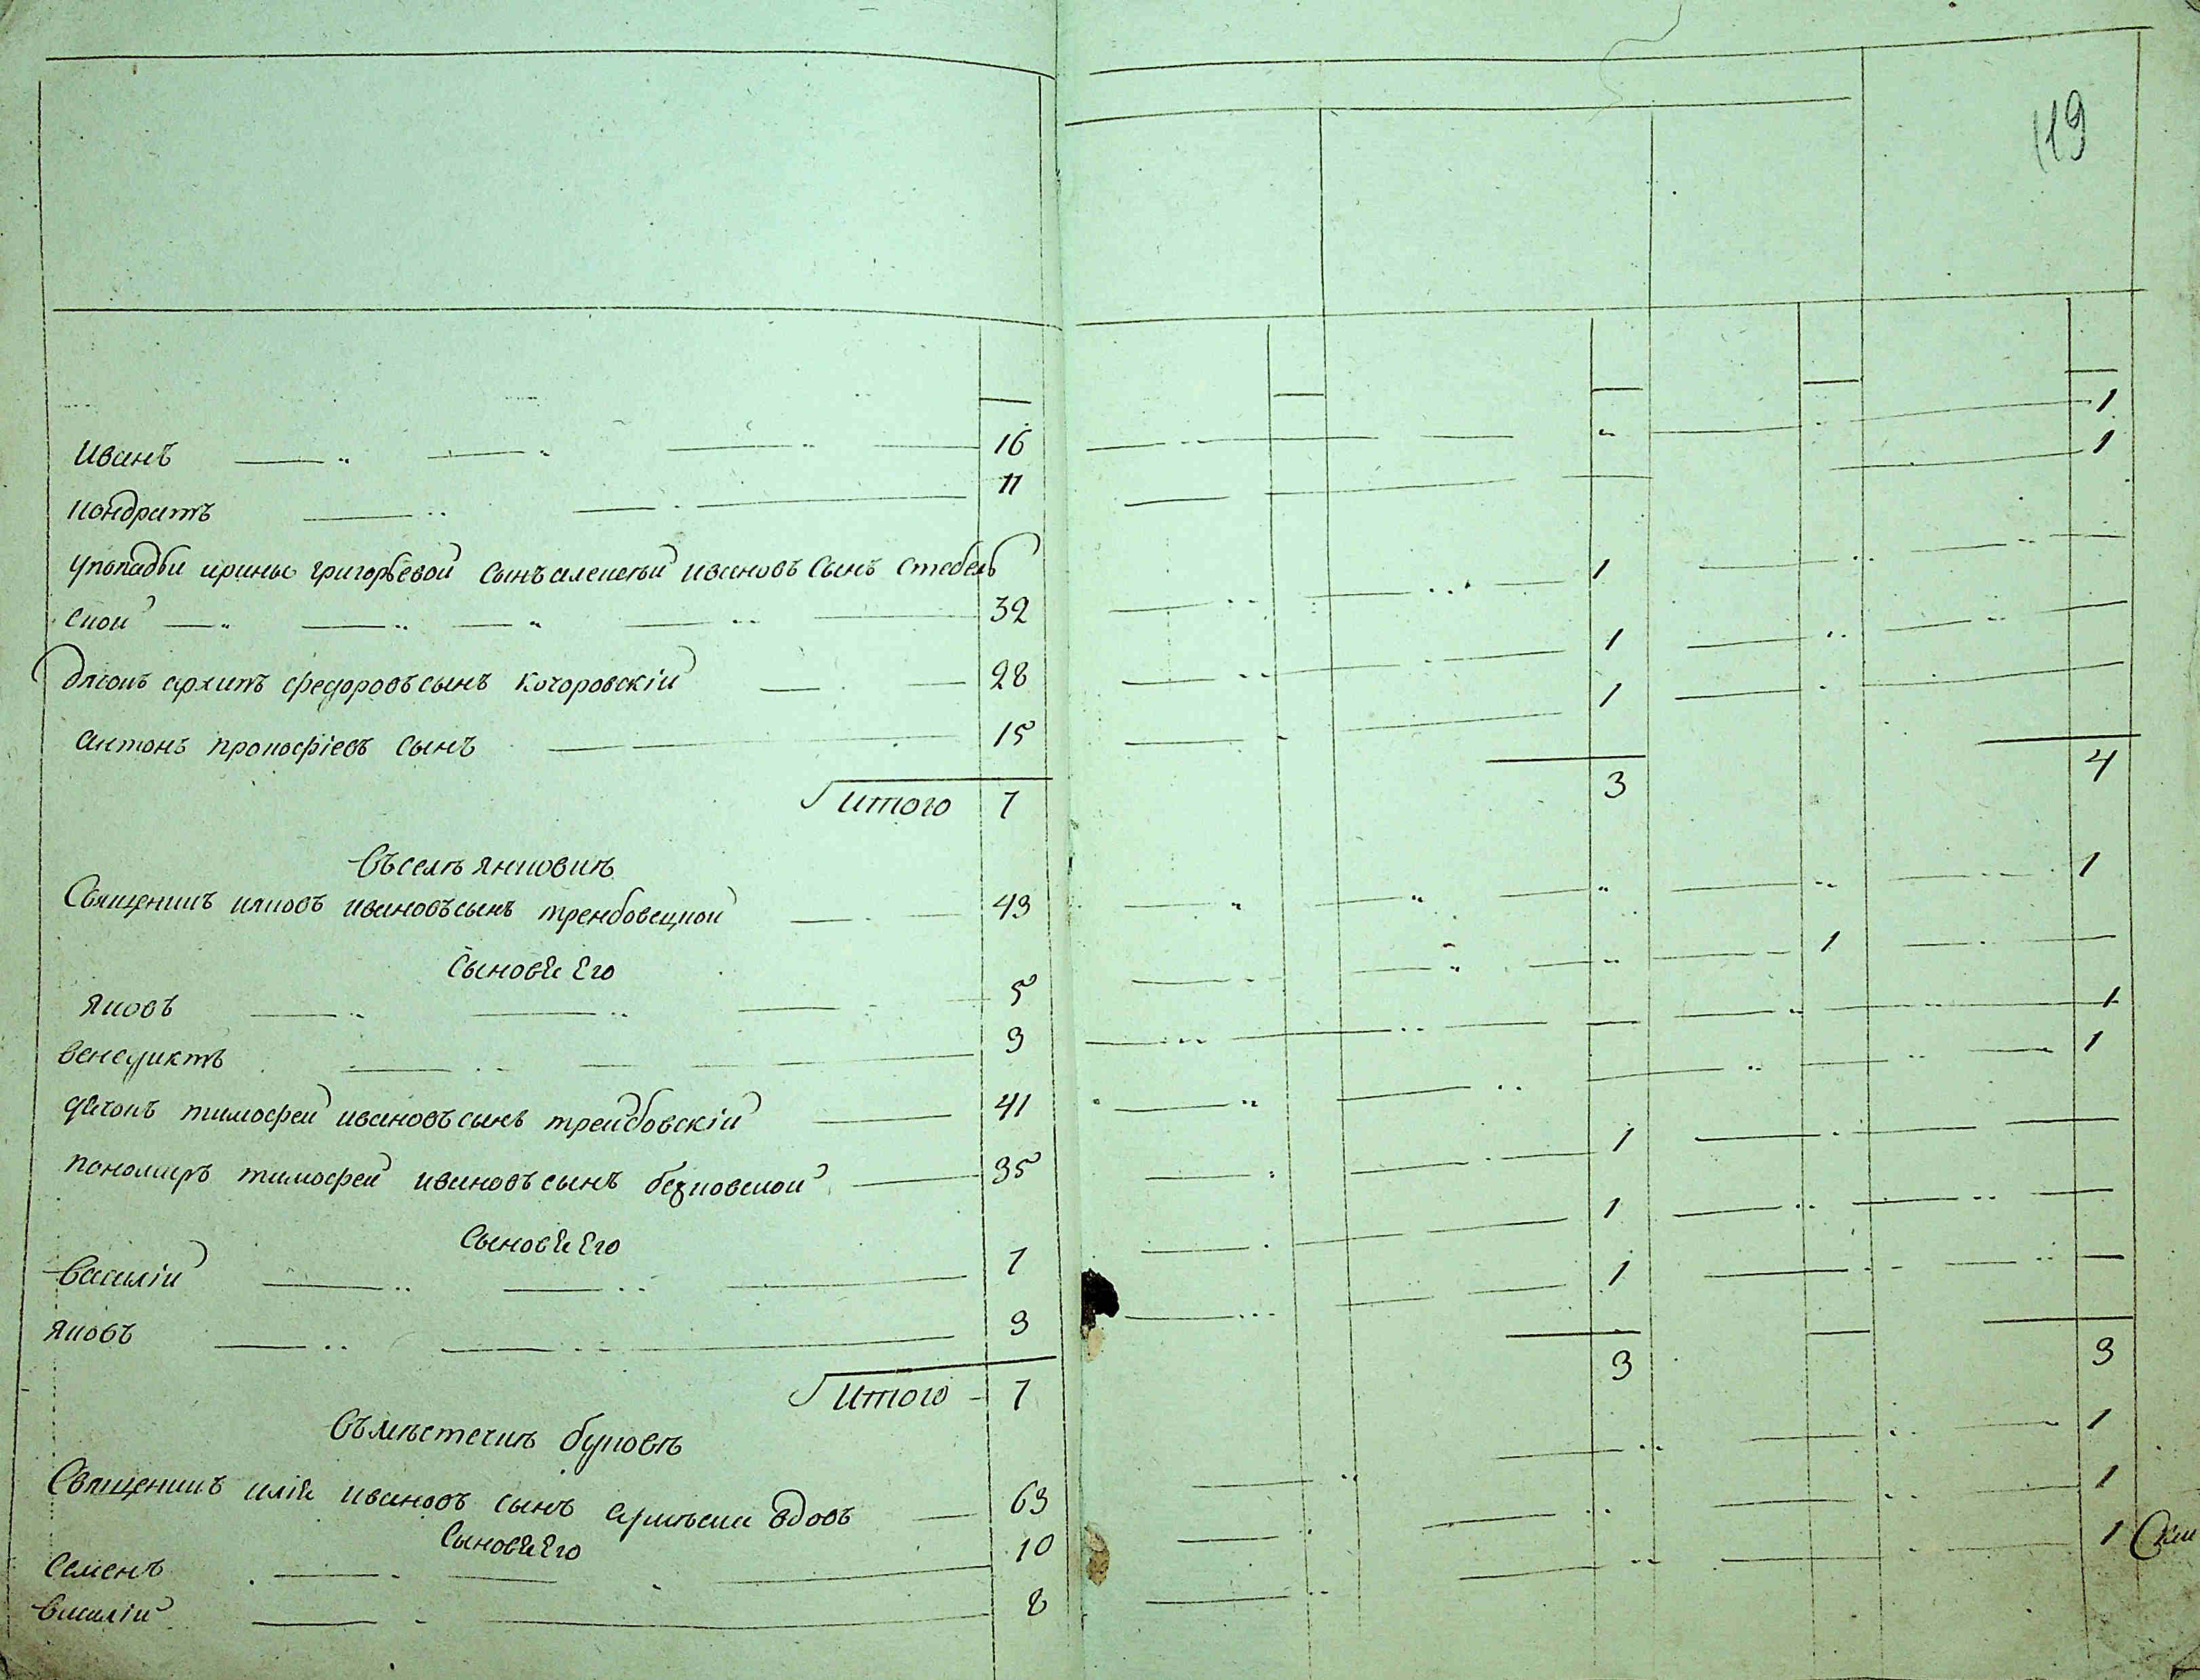 119
1
Иванъ 16 1
Кондратъ 11
Упопадьи ирины григорьевой сынъ алексѣй ивановъ сынъ стебель
ской 32 1
дьяконъ архипъ федоровъ сынъ Кочоровскiй 28 1
антонъ прокофiевъ сынъ 15 1
Итого 7 3 4
Въселѣ янковкѣ
Священникъ ияковъ ивановъ сынъ трембовецкой 43 1
Сыновья Его
яковъ 5 1
венедиктъ 3 1
дьячокъ тимофей ивановъ сынъ трембовскiй 41 1
пономаръ тимофей ивановъ сынъ 35 1
Сыновья Его
Василiй 7 1
яковъ 3 1
Итого 7 3 3
Въмѣстечкѣ буковѣ
Священникъ илiя ивановъ сынъ вдовъ 63 1
Сыновья Его
Семенъ 10 1
василiй 8 1